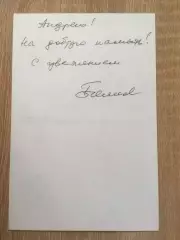 Андрею!
На добрую память!
С уважением